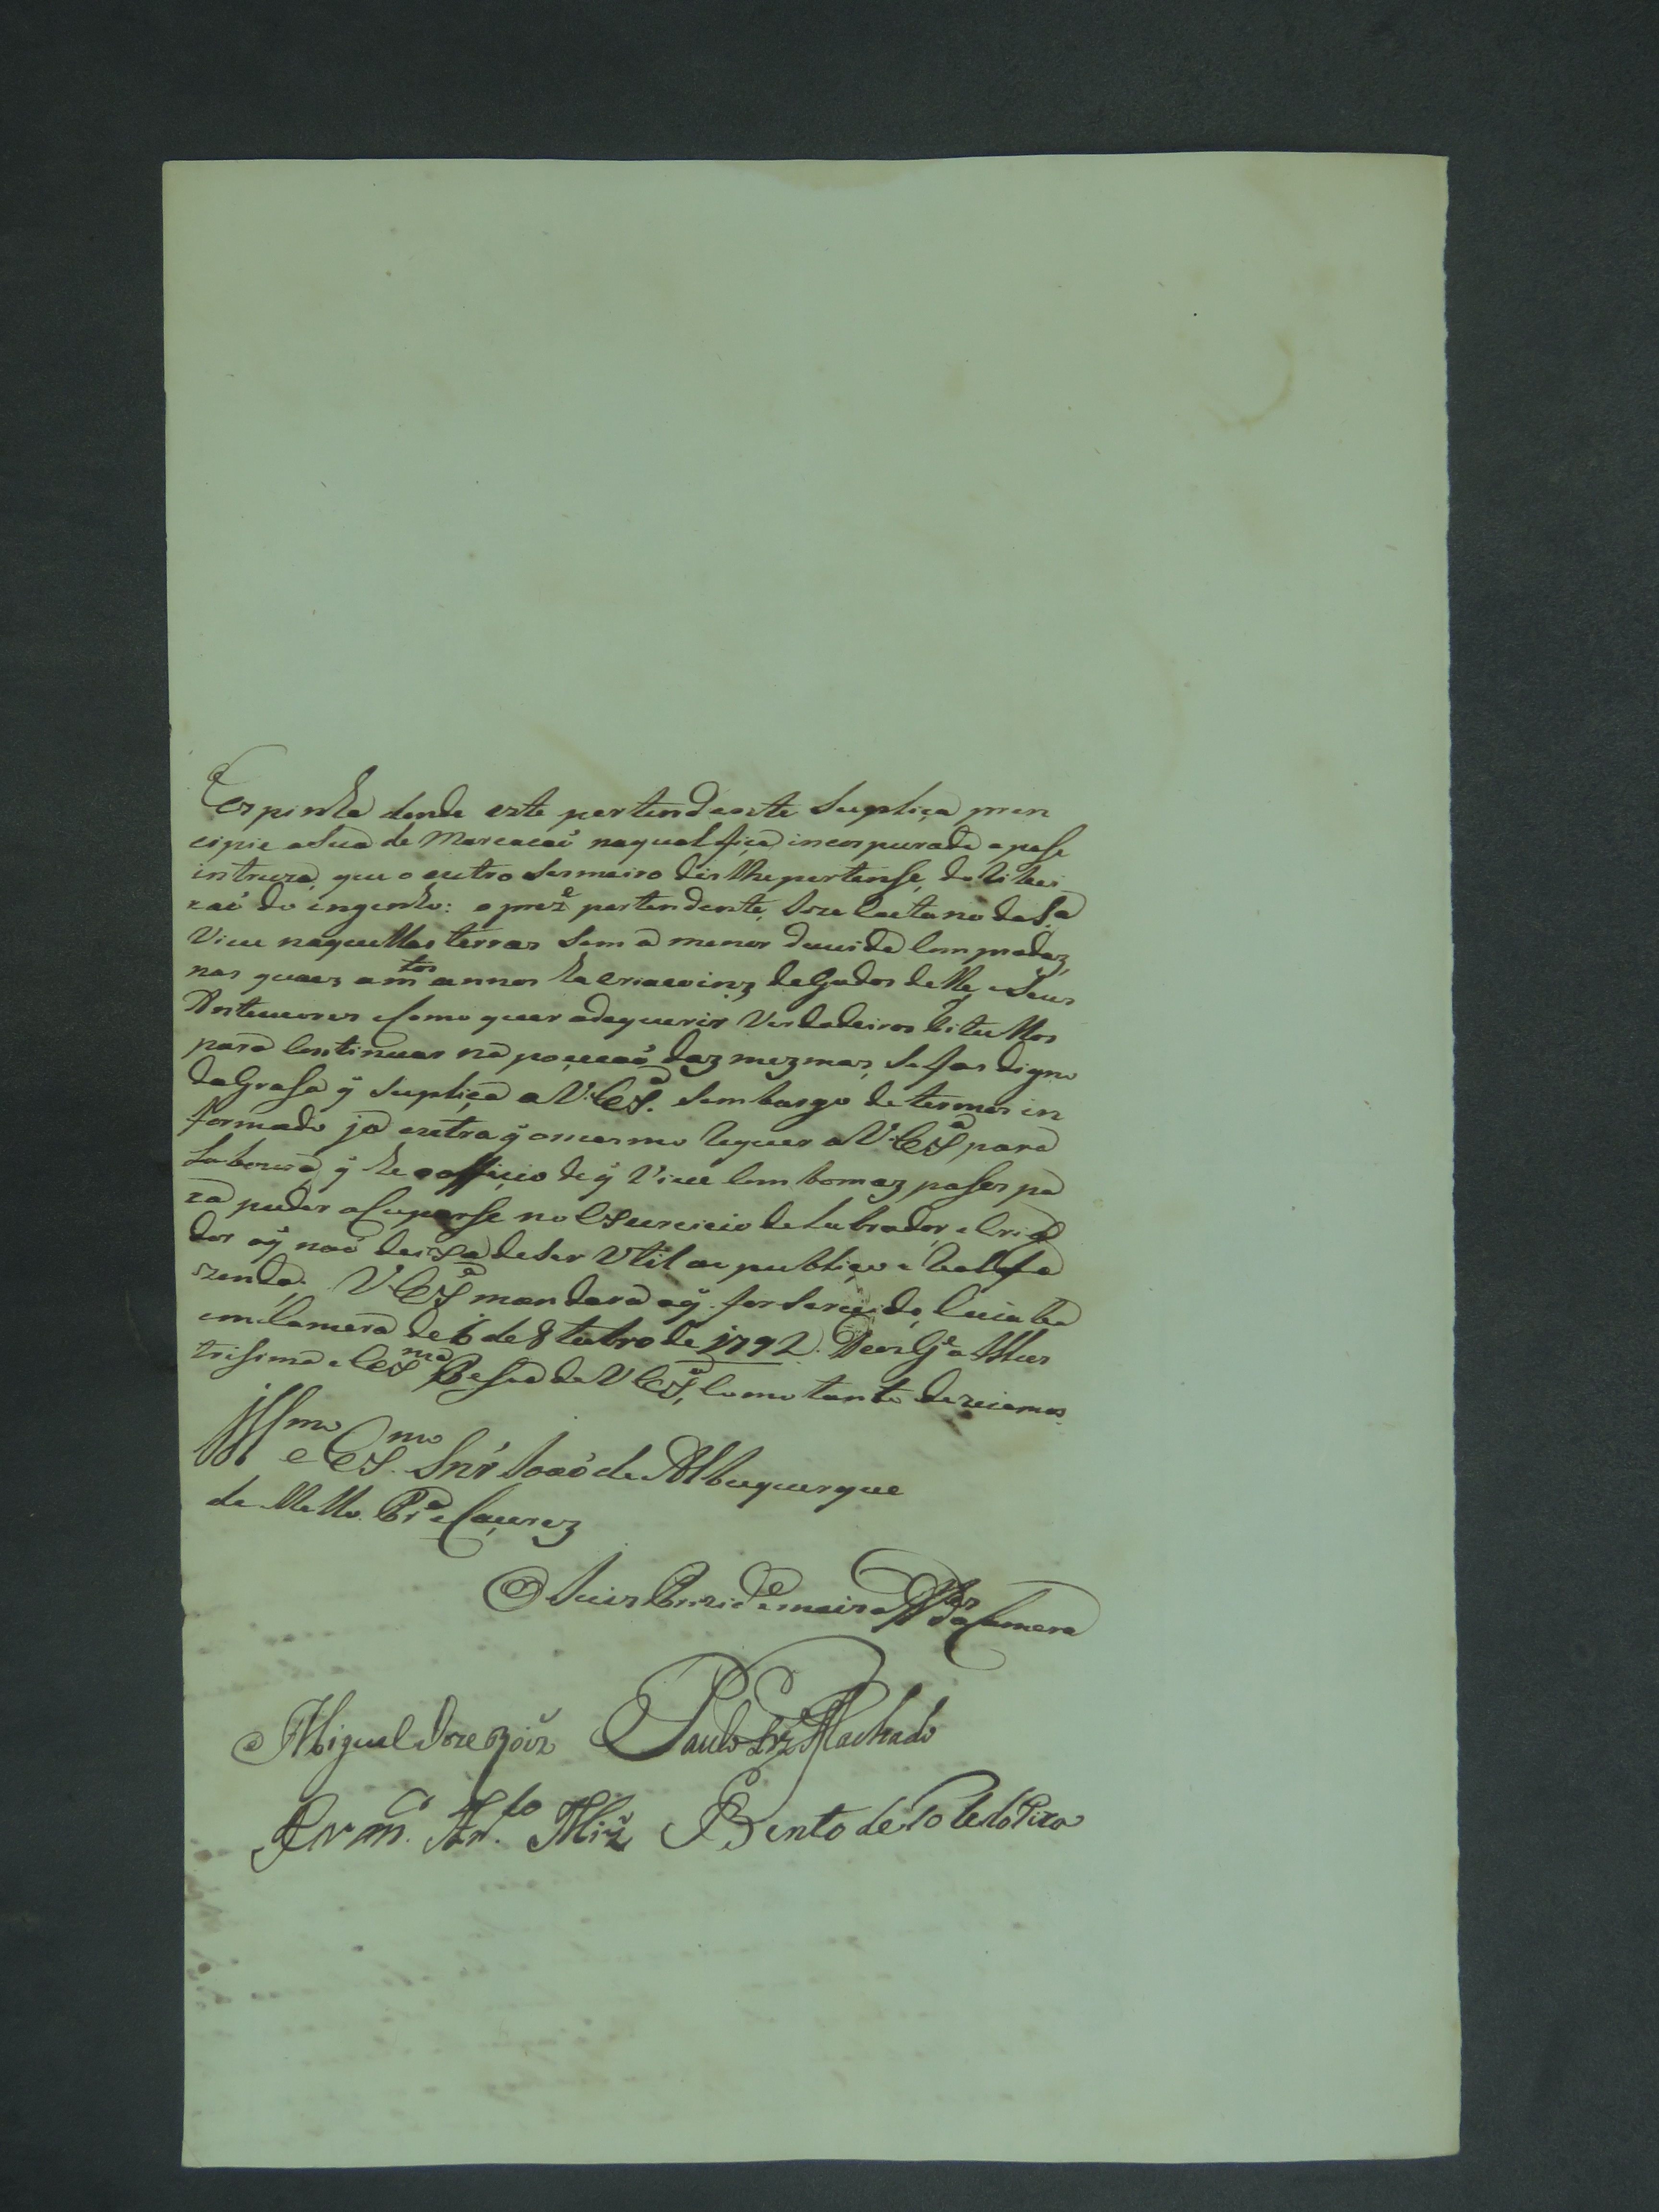 Espinha donde este pertendente suplica prin
cipie asua de marcacaó naqual fica incorpurada a pose
intruza, que o outro sesmeiro dis lhe pertense, do Ribei
raó do ingenho: o prez.e pertendente, Joze Caetano da S.a
Vive naquellas terras sem a menor duvida Compradaz,
nas quaez a m.tos annos ha criacoinz de Gados delle e seus
Antecesores e Como quer adequerir Verdadeiros titullos
para Continuar na poçecaó daz mezmaz, se fas digno
da Grasa q̃ suplica a V. Ex.a sem bargo de termos in
formado ja outra q̃ o mesmo Requer a V. Ex.a para
Laboura, q̃ he o officio de q̃ Vive Com bomaz poses pa
ra puder aCuparse no Exurcicio de Labrador, e Cria
dor o q̃ naó deixa de ser Util ao publico e Real fa
zenda. V. Ex.a mandara o q̃ for servido, Cuiaba
em Camera de 6 de 8tubro de 1792. Deos G.e a Illus
trisima e Ex.ma Pesoa de V. Ex.a, Como tanto dezeiamos.
Ill.mo e Ex.mo Snr̃ Joaó de Albuquerque
de Mello Pr.a e Caceres
O Juis Prezidente e maiz Ver.es da Camera
Miguel Joze Roiz Paulo Machado
An.to Miz Bento de Toledo Piza